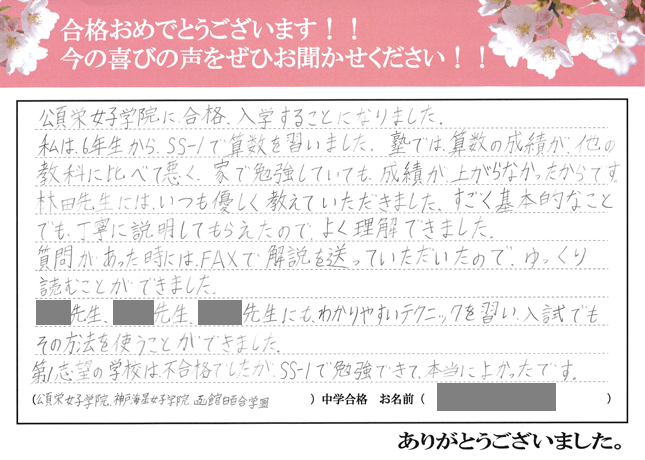 合格おめでとうございます！！
今の喜びの声をぜひお聞かせください！！
頌栄女子学院に、合格、入学することになりました。
私は、6年生から、SS-1で算数を習いました。塾では、算数の成績が、他の
教科に比べて悪く、家で勉強していても、成績が、上がらなかったからです。
林田先生には、いつも優しく教えていただきました。すごく基本的なこと
でも、丁寧に説明してもらえたので、よく理解できました。
質問があった時には、FAXで解説を送っていただいたので、ゆっくり
読むことができました。
先生、先生、先生にも、わかりやすいテクニックを習い、入試でも
その方法を使うことができました。
第1志望の学校は、不合格でしたが、SS-1で勉強できて、本当によかったです。
（頌栄女子学院、神戸海星女子学院、函館白百合学園 ）中学合格 お名前（ ）
ありがとうございました。